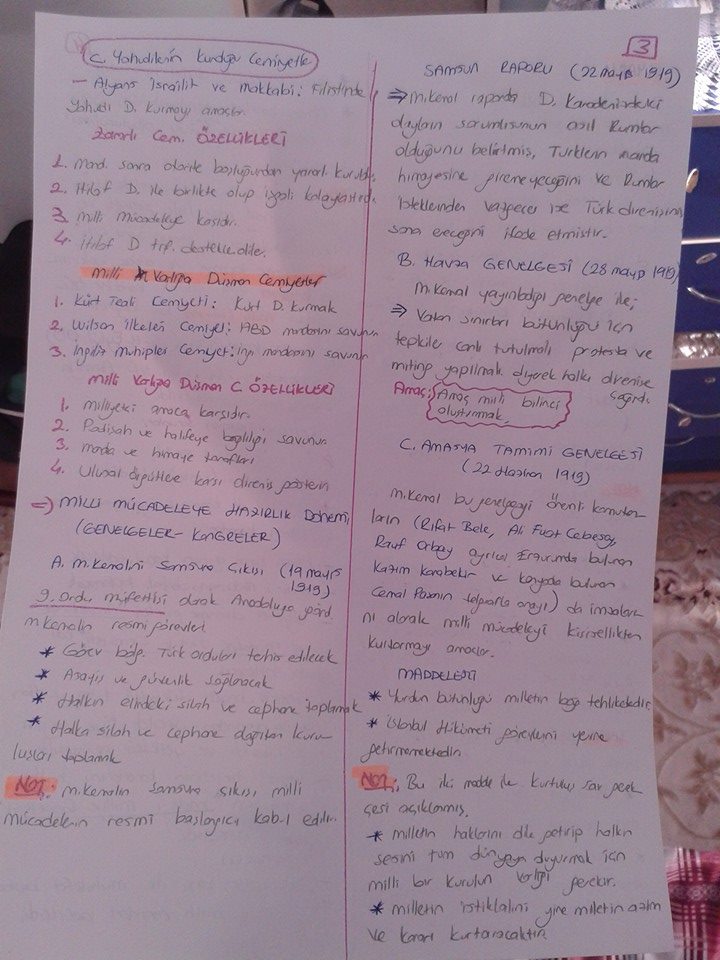 C. Yahudilerin Kurduğu Cemiyetle
— Alyans İsrailit ve Makkabi: Filistinde
Yahudi D. kurmayı amaçlar.
Zararlı Cem. ÖZELLİKLERİ
1. Mond. sonra otorite boşluğundan yararl. kuruldu
2. İtilaf D. ile birlikte olup işgali kolaylaştırdı
3. milli mücadeleye karşıdır.
4. İtilaf D. trf. destekledile.
Milli Varlığa Düşman Cemiyetler
1. Kürt Teali Cemiyeti: Kürt D. kurmak
2. Wilson İlkeleri Cemiyet: ABD mandasını savunun
3. İngiliz muhipler Cemiyet: İngi mandasını savunun
Milli Varlığa Düşman C. ÖZELLİKLERİ
1. milliyetçi amaca karşıdır.
2. Padişah ve halifeye bağlılığı savunur
3. manda ve himaye taraftarı
4. Ulusal örgütlere karşı direniş gösterin
=> MİLLİ MÜCADELEYE HAZIRLIK Dönemi
(GENELGELER - KONGRELER)
A. M.Kemalini Samsuna Çıkışı (19 mayıs
1919)
9. Ordu müfettişi olarak Anadoluya gönd.
M.Kemalin resmi görevleri
* Görev bölg. Türk orduları terhis edilecek
* Asayiş ve güvenlik sağlanacak
* Halkın elindeki silah ve cephane toplamak
* Halka silah ve cephane dağıtan kuru
luşları toplamak
NOT: M.Kemalin Samsuna çıkışı milli
mücadelenin resmi başlangıcı kabul edilir.
3
SAMSUN RAPORU (22 mayıs 1919)
=> M.Kemal raporda D. Karadenizdeki
olayların sorumlusunun asıl Rumlar
olduğunu belirtmiş, Türklerin manda
himayesine giremeyeceğini ve Rumlar
isteklerinden vazgeçer ise Türk direnişinin
sona ereceğini ifade etmiştir.
B. Havza GENELGESİ (28 mayıs 1919)
M.Kemal yayınladığı genelge ile;
=> Vatan sınırları bütünlüğü için
tepkile canlı tutulmalı protesto ve
miting yapılmak diyerek halkı direnişe
çağırdı
Amaç: Amaç milli bilinci
oluşturmak.
C. AMASYA TAMİMİ GENELGESİ
(22 Haziran 1919)
M.Kemal bu genelgeyi önemli komutan
ların (Rıfat Bele, Ali Fuat Cebesoy,
Rauf Orbay ayrıca Erzurumda bulunan
Kazım Karabekir ve Konyada bulunan
Cemal Paşanın telgrafla onayı) da imzaları
nı alarak milli mücadeleyi kişisellikten
kurtarmayı amaçlar.
MADDELERİ
* Yurdun bütünlüğü milletin bağ tehlikededir
* İstanbul Hükümeti görevlerini yerine
getirmemektedir.
NOT: Bu iki madde ile kurtuluş sav gerek
çesi açıklanmış.
* milletin haklarını dile getirip halkın
sesini tüm dünyaya duyurmak için
milli bir kurulun varlığı gerekir.
* milletin istiklalini yine milletin azim
ve kararı kurtaracaktır.